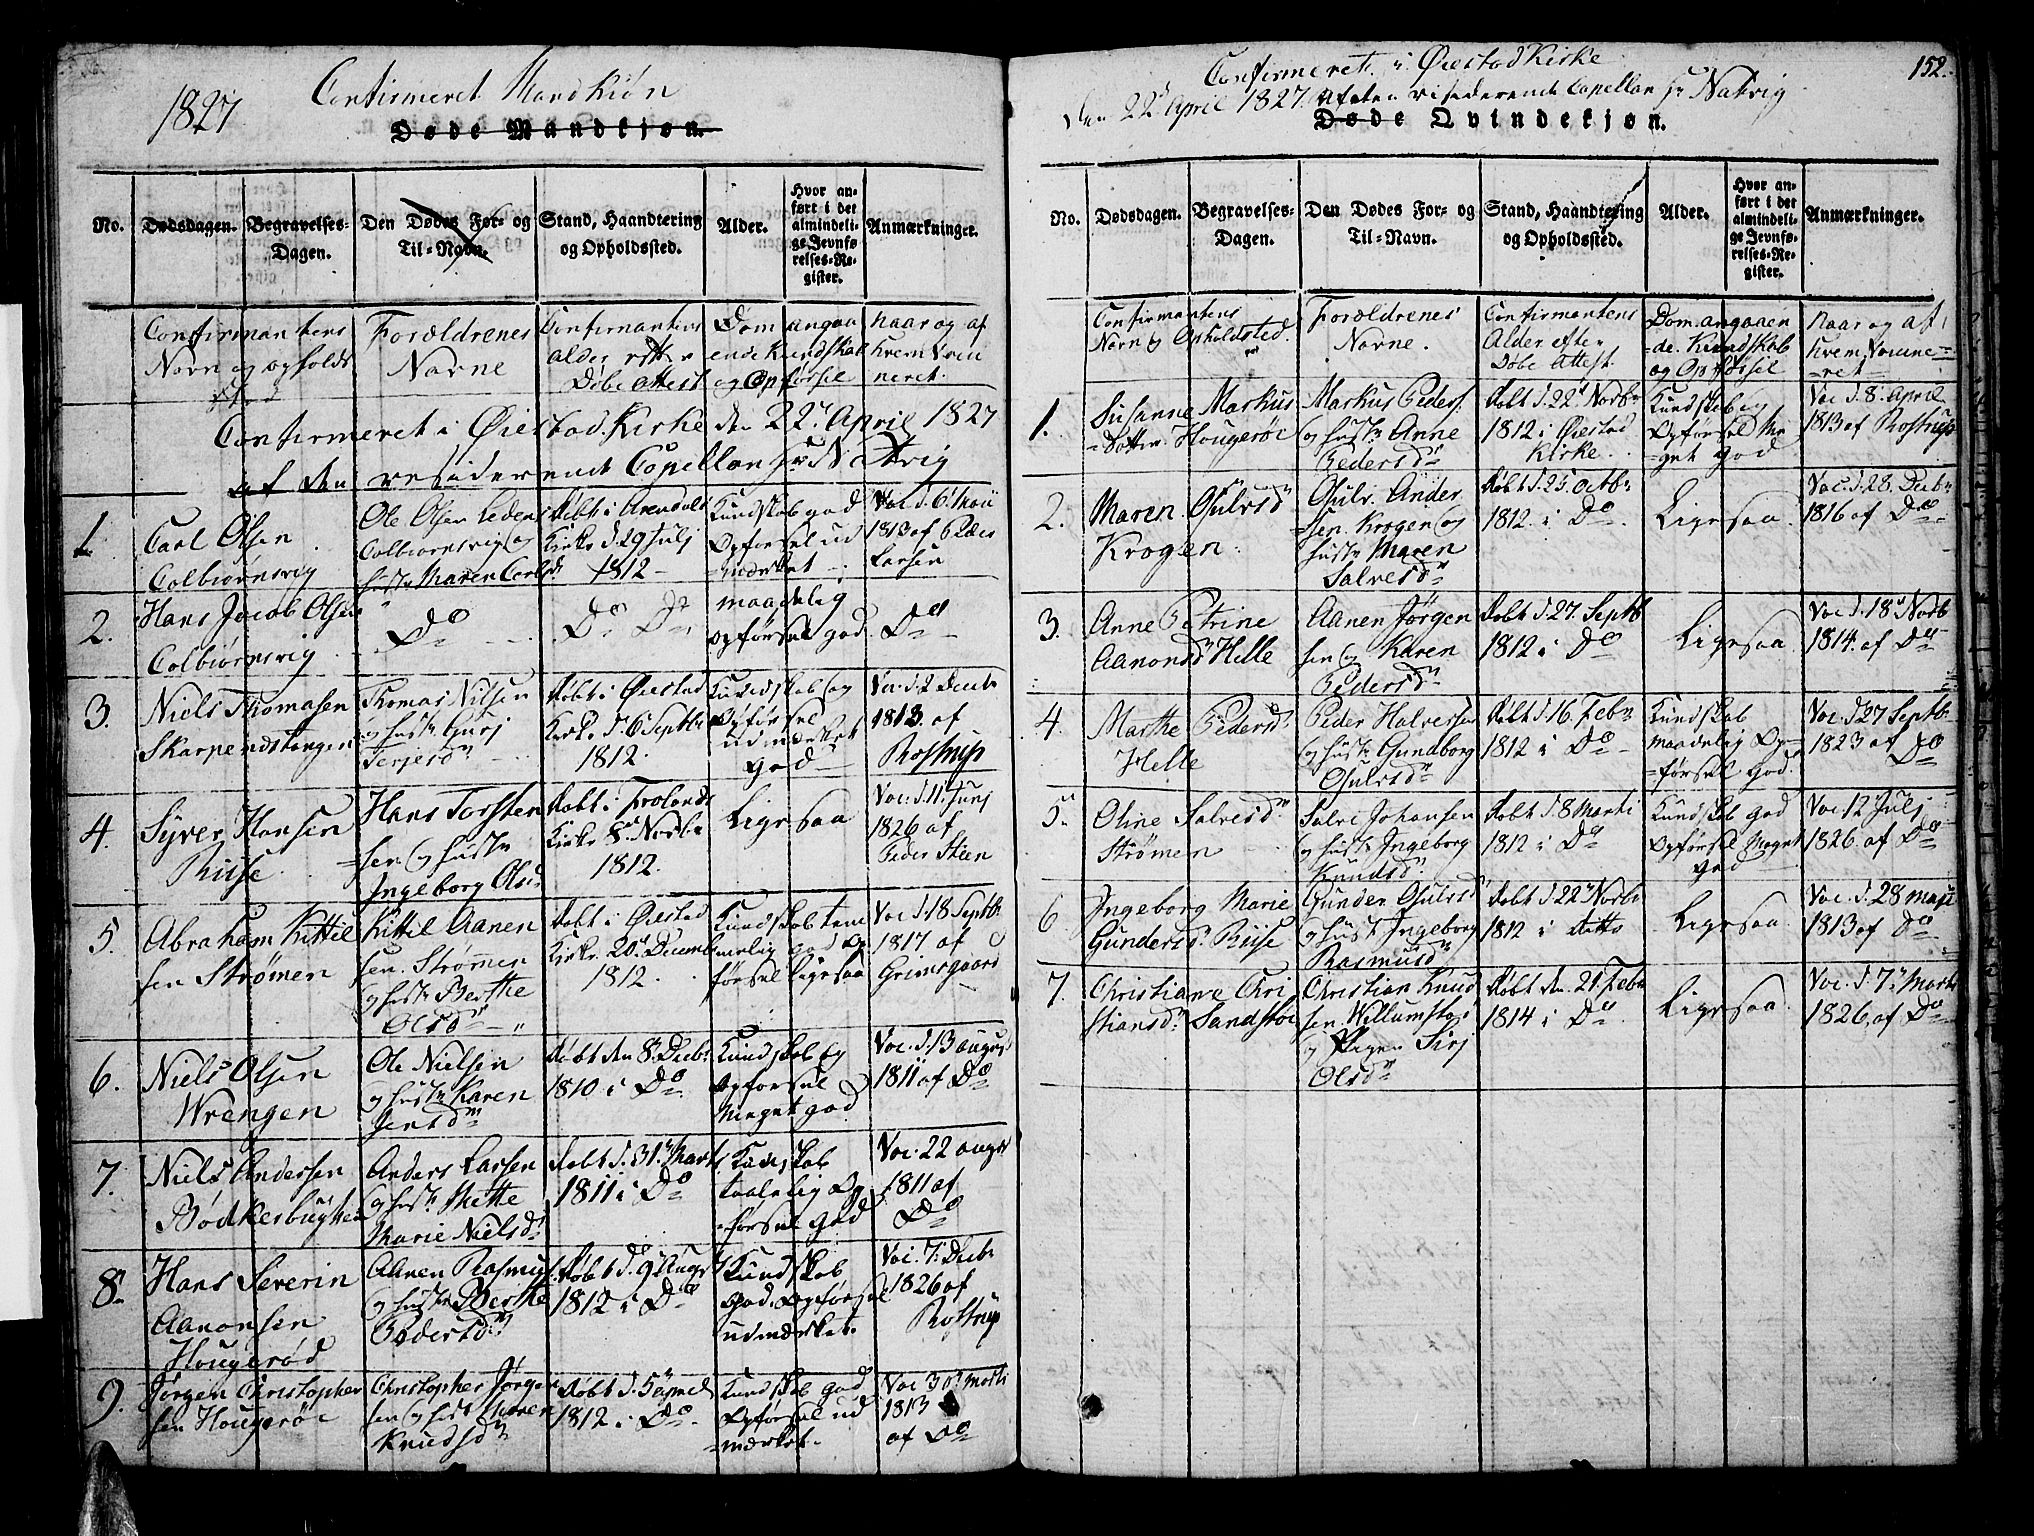 1827
Confirmeret Mandkiøn
Døde Mandkjøn.
No.
Dødsdagen.
Begravelses-
Dagen.
Den Dødes For- og
Til-Navn.
Stand, Haandtering
og Opholdssted.
Alder.
Hvor an-
ført i det
almindeli-
ge Jevnfø-
relses-Re-
gister.
Anmærkninger.
Confirmantens
Navn og opholds
sted
Forældrenes
Navne
Confirmantens
alder efter
Døbe attest
Dom angaa
ende Kundskab
og Opførsel
Naar og af
hvem Vaxi
neret.
Confirmeret i Øiestad Kirke den 22. April 1827
af den residerende Capellan Hr Natvig
1.
Carl Olsen
Colbiørnsvig
Ole Olsen
Colbiørnsvig og
hust: Maren Carlsd:
døbt i Arendals
Kirke d 29 July
1812
Kundskab god
Opførsel ud
mærket
Vac: d. 6. Maii
1813 af Peder
Larsen
2.
Hans Jacob Olsen
Colbiørnsvig
Do
Do Do
maadelig
opførsel god
Do
3.
Niels Thomasen
Skarpendstangen
Thomas Nilsen
og hust: Gurj
Terjesd:
døbt i Øiestad
Kirke d 6 Septbr
1812.
Kundskab og
Opførsel
udmærket
god
Vac: d. 2 Decbr
1813. af
Rostrup
4.
Syver Hansen
Riise
Hans Torsten
sen og hust:
Ingeborg Olsd:
døbt i Frolands
Kirke 8d Novbr
1812.
Ligesaa
Vac: d. 11. Junj
1826 af
Peder Steen
5.
Abraham Kittil
sen Strømen
Kittil Aanen
sen Strømen
og hust: Berthe
Olsd:
døbt i Øiestad
Kirke 20d Decemb
1812.
Kundskab tem
melig god Op
førsel ligesaa
Vac d. 18 Septbr
1817 af
Grimsgaard
6.
Niels Olsen
Wrengen
Ole Nielsen
og hust: Karen
Jensd:
døbt den 8. Decbr
1810 i Do
Kundskab og
Opførsel
Meget god
Vac. d. 13 august
1811 af Do
7.
Niels Andersen
Bødkerbugten
Anders Larsen
og hust: Mette
Marie Nielsd:
døbt d. 31. Marts
1811 i Do
Kundskab
taalelig Op
førsel god
Vac. 22 augst
1811 af
Do
8.
Hans Severin
Aanonsen
Hougerød
Aanen Rasmus
og hust: Berthe
Pedersd:
døbt d. 9 Augst
1812 i Do
Kundskab
god. Opførsel
udmærket.
Vac. 7. Decbr
1826 af
Rostrup
9.
Jørgen Christopher
sen Hougerøe
Christopher Jørgen
sen og hust: Maren
Knudsd:
døbt d. 5 april
1812 i Do
Kundskab god
Opførsel ud
mærket.
Vac 30 marti
1813
af Do
152.
Confirmeret i Øiestad Kirke
den 22d April 1827. af den residerende Capellan Hr Natvig
Døde Qvindekjøn.
No.
Dødsdagen.
Begravelses-
Dagen.
Den Dødes For- og
Til-Navn.
Stand, Haandtering
og Opholdssted.
Alder.
Hvor an-
ført i det
almindeli-
ge Jevnfø-
relses-Re-
gister.
Anmærkninger.
Confirmantens
Navn & Opholdsted.
Forældrenes
Navne.
Confirmantens
Alder efter
Døbe attest.
Dom angaaen
de. Kundskab
og Opførsel
Naar og af
hvem Vaccine
ret
1.
Susanne Markus
Dotter. Hougerøe
Markus Peders.
og hust: Anne
Pedersd:
døbt d. 22d Novbr
1812 i Øiestad
Kirke.
Kundskab og
Opførsel Me
get god
Vac d. 8. April
1813 af Rostrup
2.
Maren Gulvsd:
Krogen.
Gulv. Ander
sen. Krogen og
hust: Maren
Salvesd:
døbt d. 25. Octbr
1812. i Do
Ligesaa.
Vac. d. 28. Decbr
1816 af Do
3.
Anne Petrine
Aanonsd: Helle
Aanen Jørgen
sen og Karen
Pedersd:
døbt d. 27. Septb
1812 i Do
Ligesaa
Voc. d. 18d Novb
1814. af Do
4.
Marthe Pedersd:
Helle
Peder Halversen
og hust: Gundborg
Gulvsd:
døbt d. 16. Febr
1812 i Do
Kundskab
maadelig Op
førsel god.
Voc: d 27 Septbr
1823 af Do
5.
Oline Salvesd:
Strømen
Salve Johansen
og hust: Ingeborg
Knudsd:
døbt d. 8 Marti
1812 i Do
Kundskab god
Opførsel Meget
god
Voc: 12 Julj
1826. af Do
6
Ingeborg Marie
Gundersd: Riise
Gunder Gulvsd
og hust: Ingeborg
Rasmusd:
døbt d. 22d Novbr
1812 i ditto
Ligesaa.
Voc. d. 28 maji
1813 af Do
7.
Christiane Chri
stiansd: Sandstøe
Christian Knud
sen Willumstøe
og Pigen Sirj
Olsd:
døbt den. 21. Febr
1814 i Do
Ligesaa.
Voc. d. 7. Marti
1826. af Do